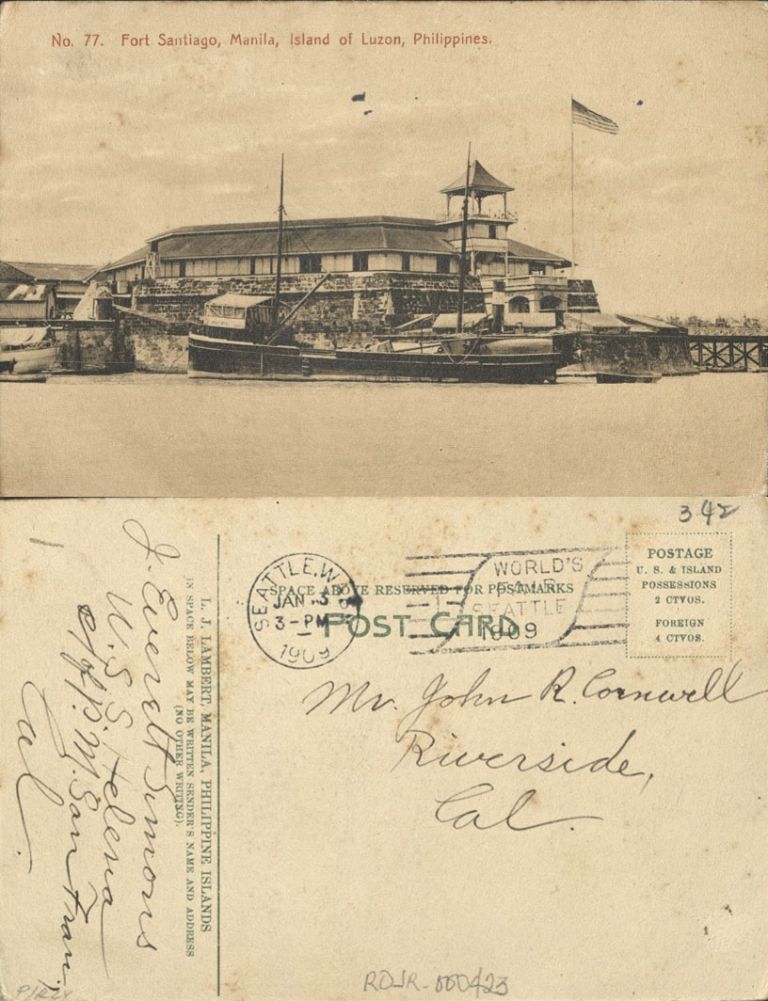 No. 77. Fort Santiago, Manila, Island of Luzon, Philippines.
342
POSTAGE
U. S. & ISLAND
POSSESSIONS
2 CTVOS.
FOREIGN
4 CTVOS.
SEATTLE, WASH
JAN 3
3-PM
1909
WORLD'S
FAIR
SEATTLE
1909
SPACE ABOVE RESERVED FOR POSTMARKS
POST CARD
Mr. John R. Cornwell
Riverside,
Cal.
L. J. LAMBERT, MANILA, PHILIPPINE ISLANDS
IN SPACE BELOW MAY BE WRITTEN SENDER'S NAME AND ADDRESS
(NO OTHER WRITING).
J. Everett Simons
U.S.S. Helena
c/o P.M. San Fran,
Cal.
ROJR-000423